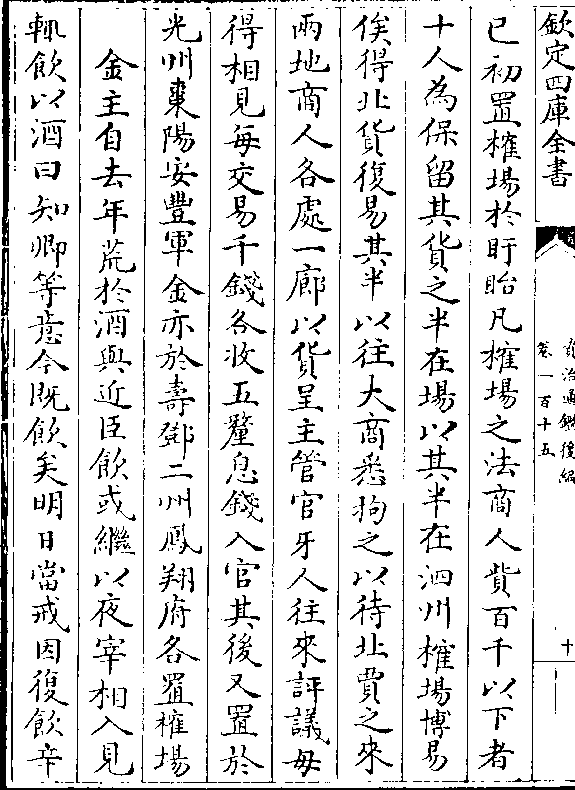 欽定四庫全書
資治通鑑後編
卷一百十五
十
已初置榷場於盱眙凡榷場之法商人貲百千以下者
十人為保留其貨之半在場以其半在泗州榷場博易
俟得北貨復易其半以往大商悉拘之以待北賈之來
兩地商人各處一廊以貨呈主管官牙人往來評議毋
得相見每交易千錢各收五釐息錢入官其後又置於
光州棗陽安豐軍金亦於壽鄧二州鳳翔府各置榷場
金主自去年荒於酒與近臣飲或繼以夜宰相入見
輒飲以酒曰知卿等意今既飲矣明日當戒因復飲辛